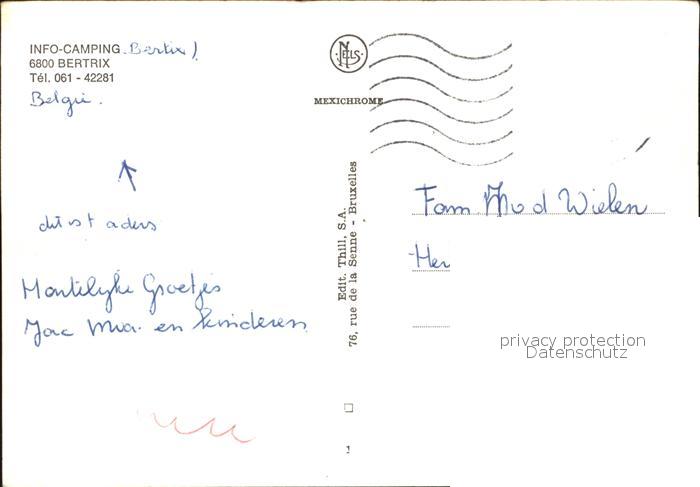 INFO-CAMPING Bertrix)
6800 BERTRIX
Tél. 061 - 42281
België.
dit is t adres
Hartelijke Groetjes
Jac Mia. en kinderen
NELS
MEXICHROME
Edit. Thill, S.A.
76, rue de la Senne - Bruxelles
1
Fam
d Wielen
Her
privacy protection
Datenschutz